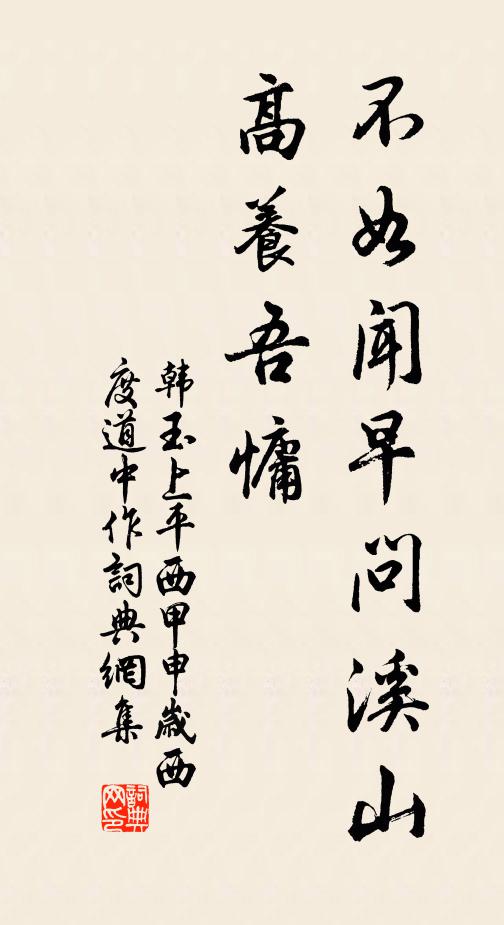 不如闻早问溪山
高养吾慵
韩玉上平西甲申岁西
度道中作詞典網集
詞典网印